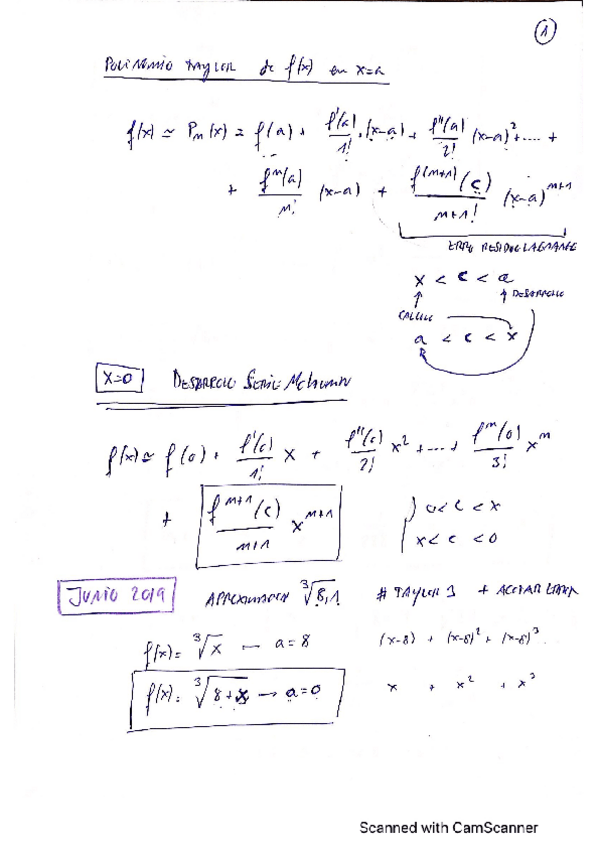 1
POLINOMIO TAYLOR de f(x) en x=a
f(x) ≃ Pₙ(x) = f(a) + f'(a)/1! · (x-a) + f''(a)/2! (x-a)² + .... +
+ fⁿ(a)/n! (x-a) + f⁽ⁿ⁺¹⁾(c)/n+1! (x-a)ⁿ⁺¹
ERROR RESIDUO LAGRANGE
x < c < a
DESARROLLO
CALCULO
a < c < x
x=0 DESARROLLO SERIE McLaurin
f(x) ≃ f(0) + f'(0)/1! x + f''(0)/2! x² + ... + fⁿ(0)/3! xⁿ
+ fⁿ⁺¹(c)/n+1 xⁿ⁺¹
0 < c < x
x < c < 0
JUNIO 2019 APROXIMACION ∛8,1 # TAYLOR 3 + ACOTAR ERROR
f(x) = ∛x — a=8 (x-8) + (x-8)² + (x-8)³
f(x) = ∛8+x → a=0 x + x² + x³
Scanned with CamScanner